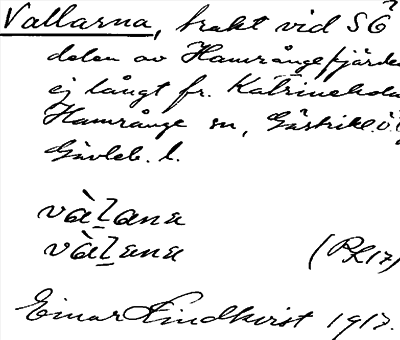 Vallarna, trakt vid SÖ
delen av Hamrångefjärde
ej långt fr. Katrineholm
Hamrånge sn, Gästrikl. ö.
Gävleb. l.
vàlana
vàlana (PL17)
Einar Lindkvist 1917.